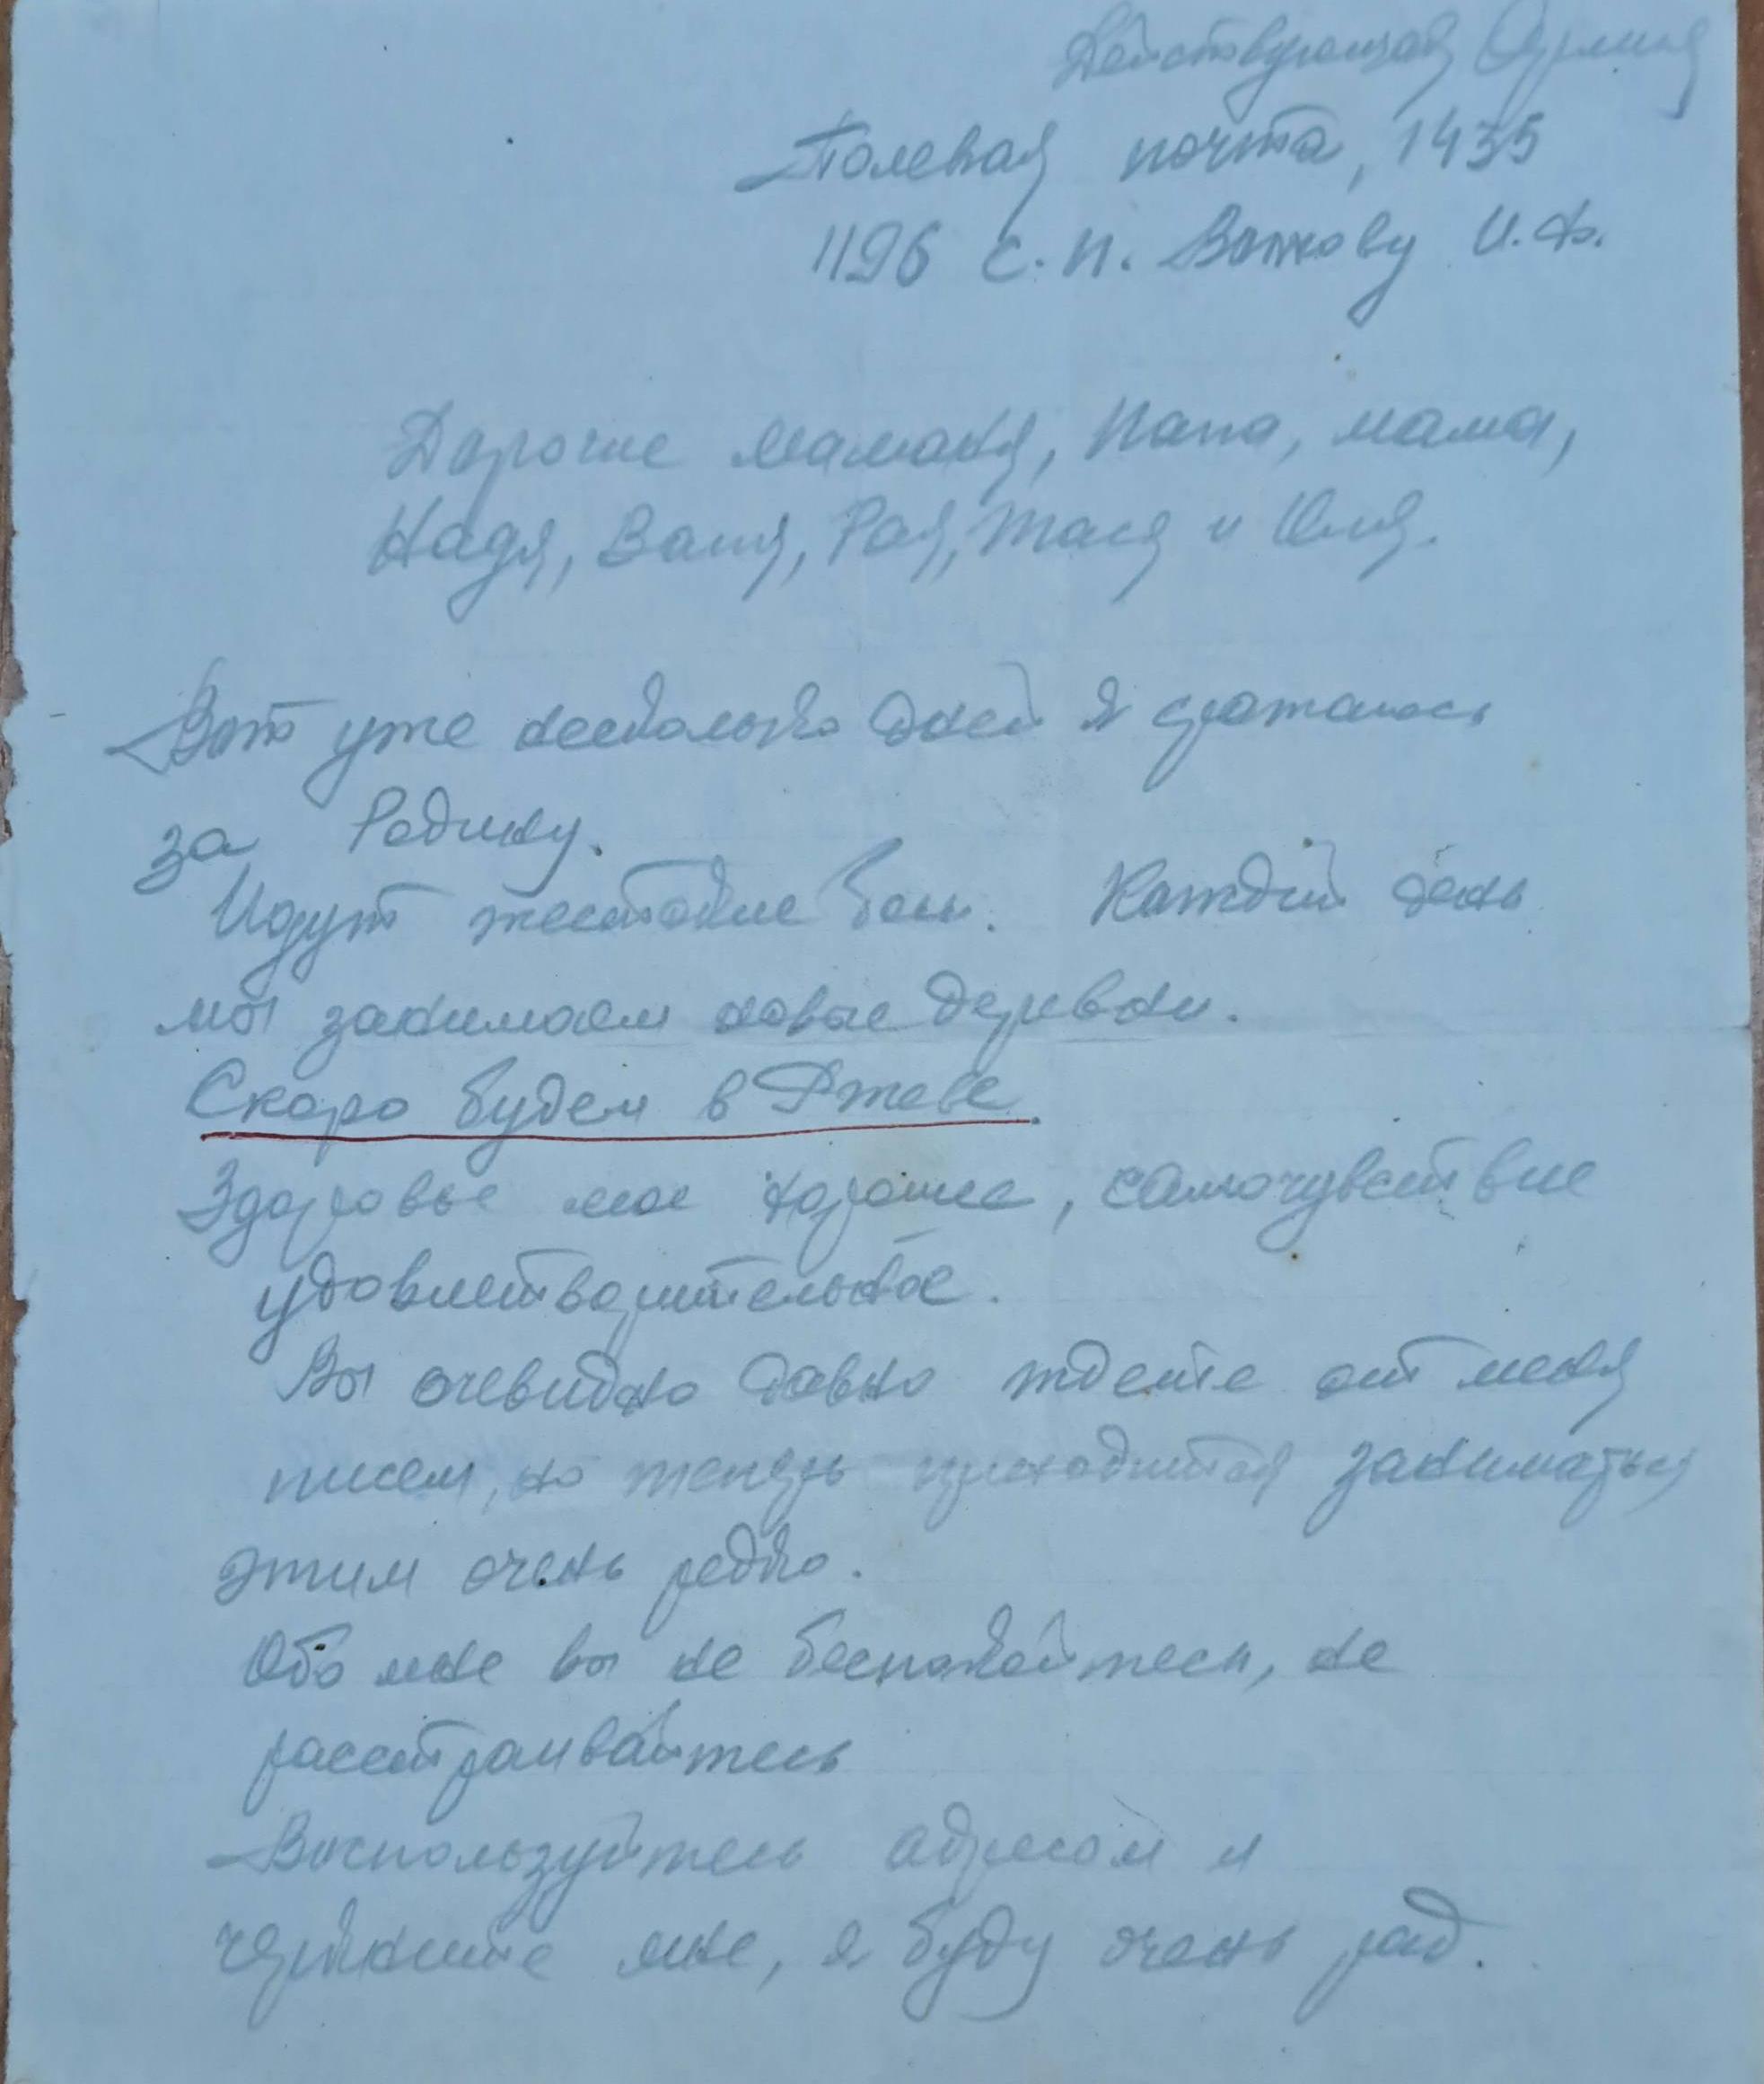 Действующая Армия
Полевая почта, 1435
1196 с. п. Волкову И. Ф.
Дорогие маманя, папа, мама,
Надя, Ваня, Рая, Тася и Юля.
Вот уже несколько дней я сражаюсь
за Родину.
Идут жестокие бои. Каждый день
мы занимаем новые деревни.
Скоро будем в Ржеве.
Здоровье мое хорошее, самочувствие
удовлетворительное.
Вы очевидно давно ждете от меня
писем, но теперь приходится заниматься
этим очень редко.
Обо мне вы не беспокойтесь, не
расстраивайтесь
Воспользуйтесь адресом и
черкните мне, я буду очень рад.